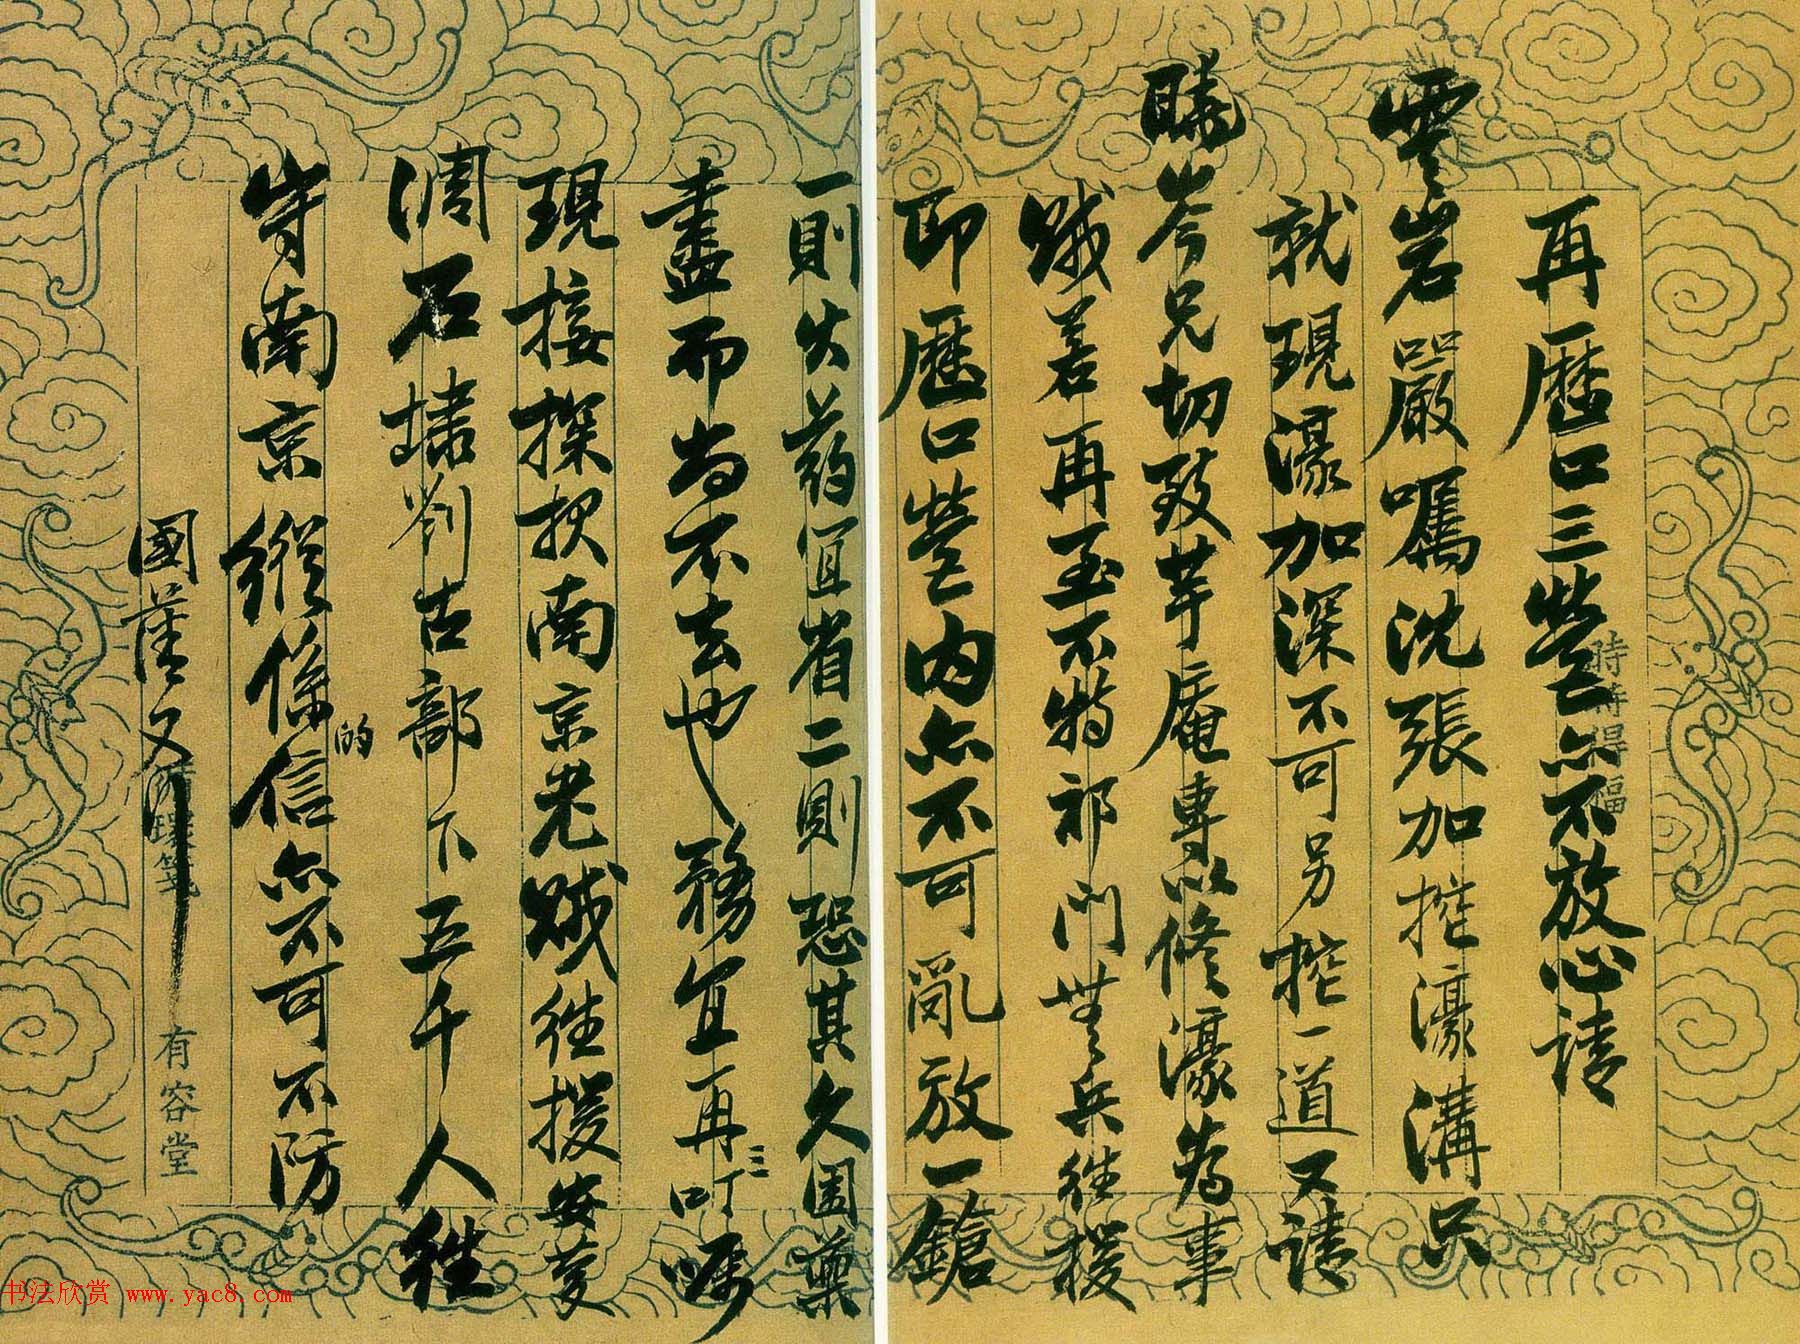 再歷口三營亦不放心請
雲岩嚴囑沈張加挖濠溝只
就現濠加深不可另挖一道又請
曉岑兄切致芋庵專以修濠為事
賊若再至不特祁門無兵往援
即歷口營內亦不可亂放一鎗
一則火药宜省二則恐其久圍藥
盡而尚不去也務宜再三叮嘱
現接探報南京老賊往援安慶
調石埭劉古部下五千人往
守南京縱係信的亦不可不防
國藩又
時再得福
瑗箋
有容堂
书法欣赏 www.yac8.com